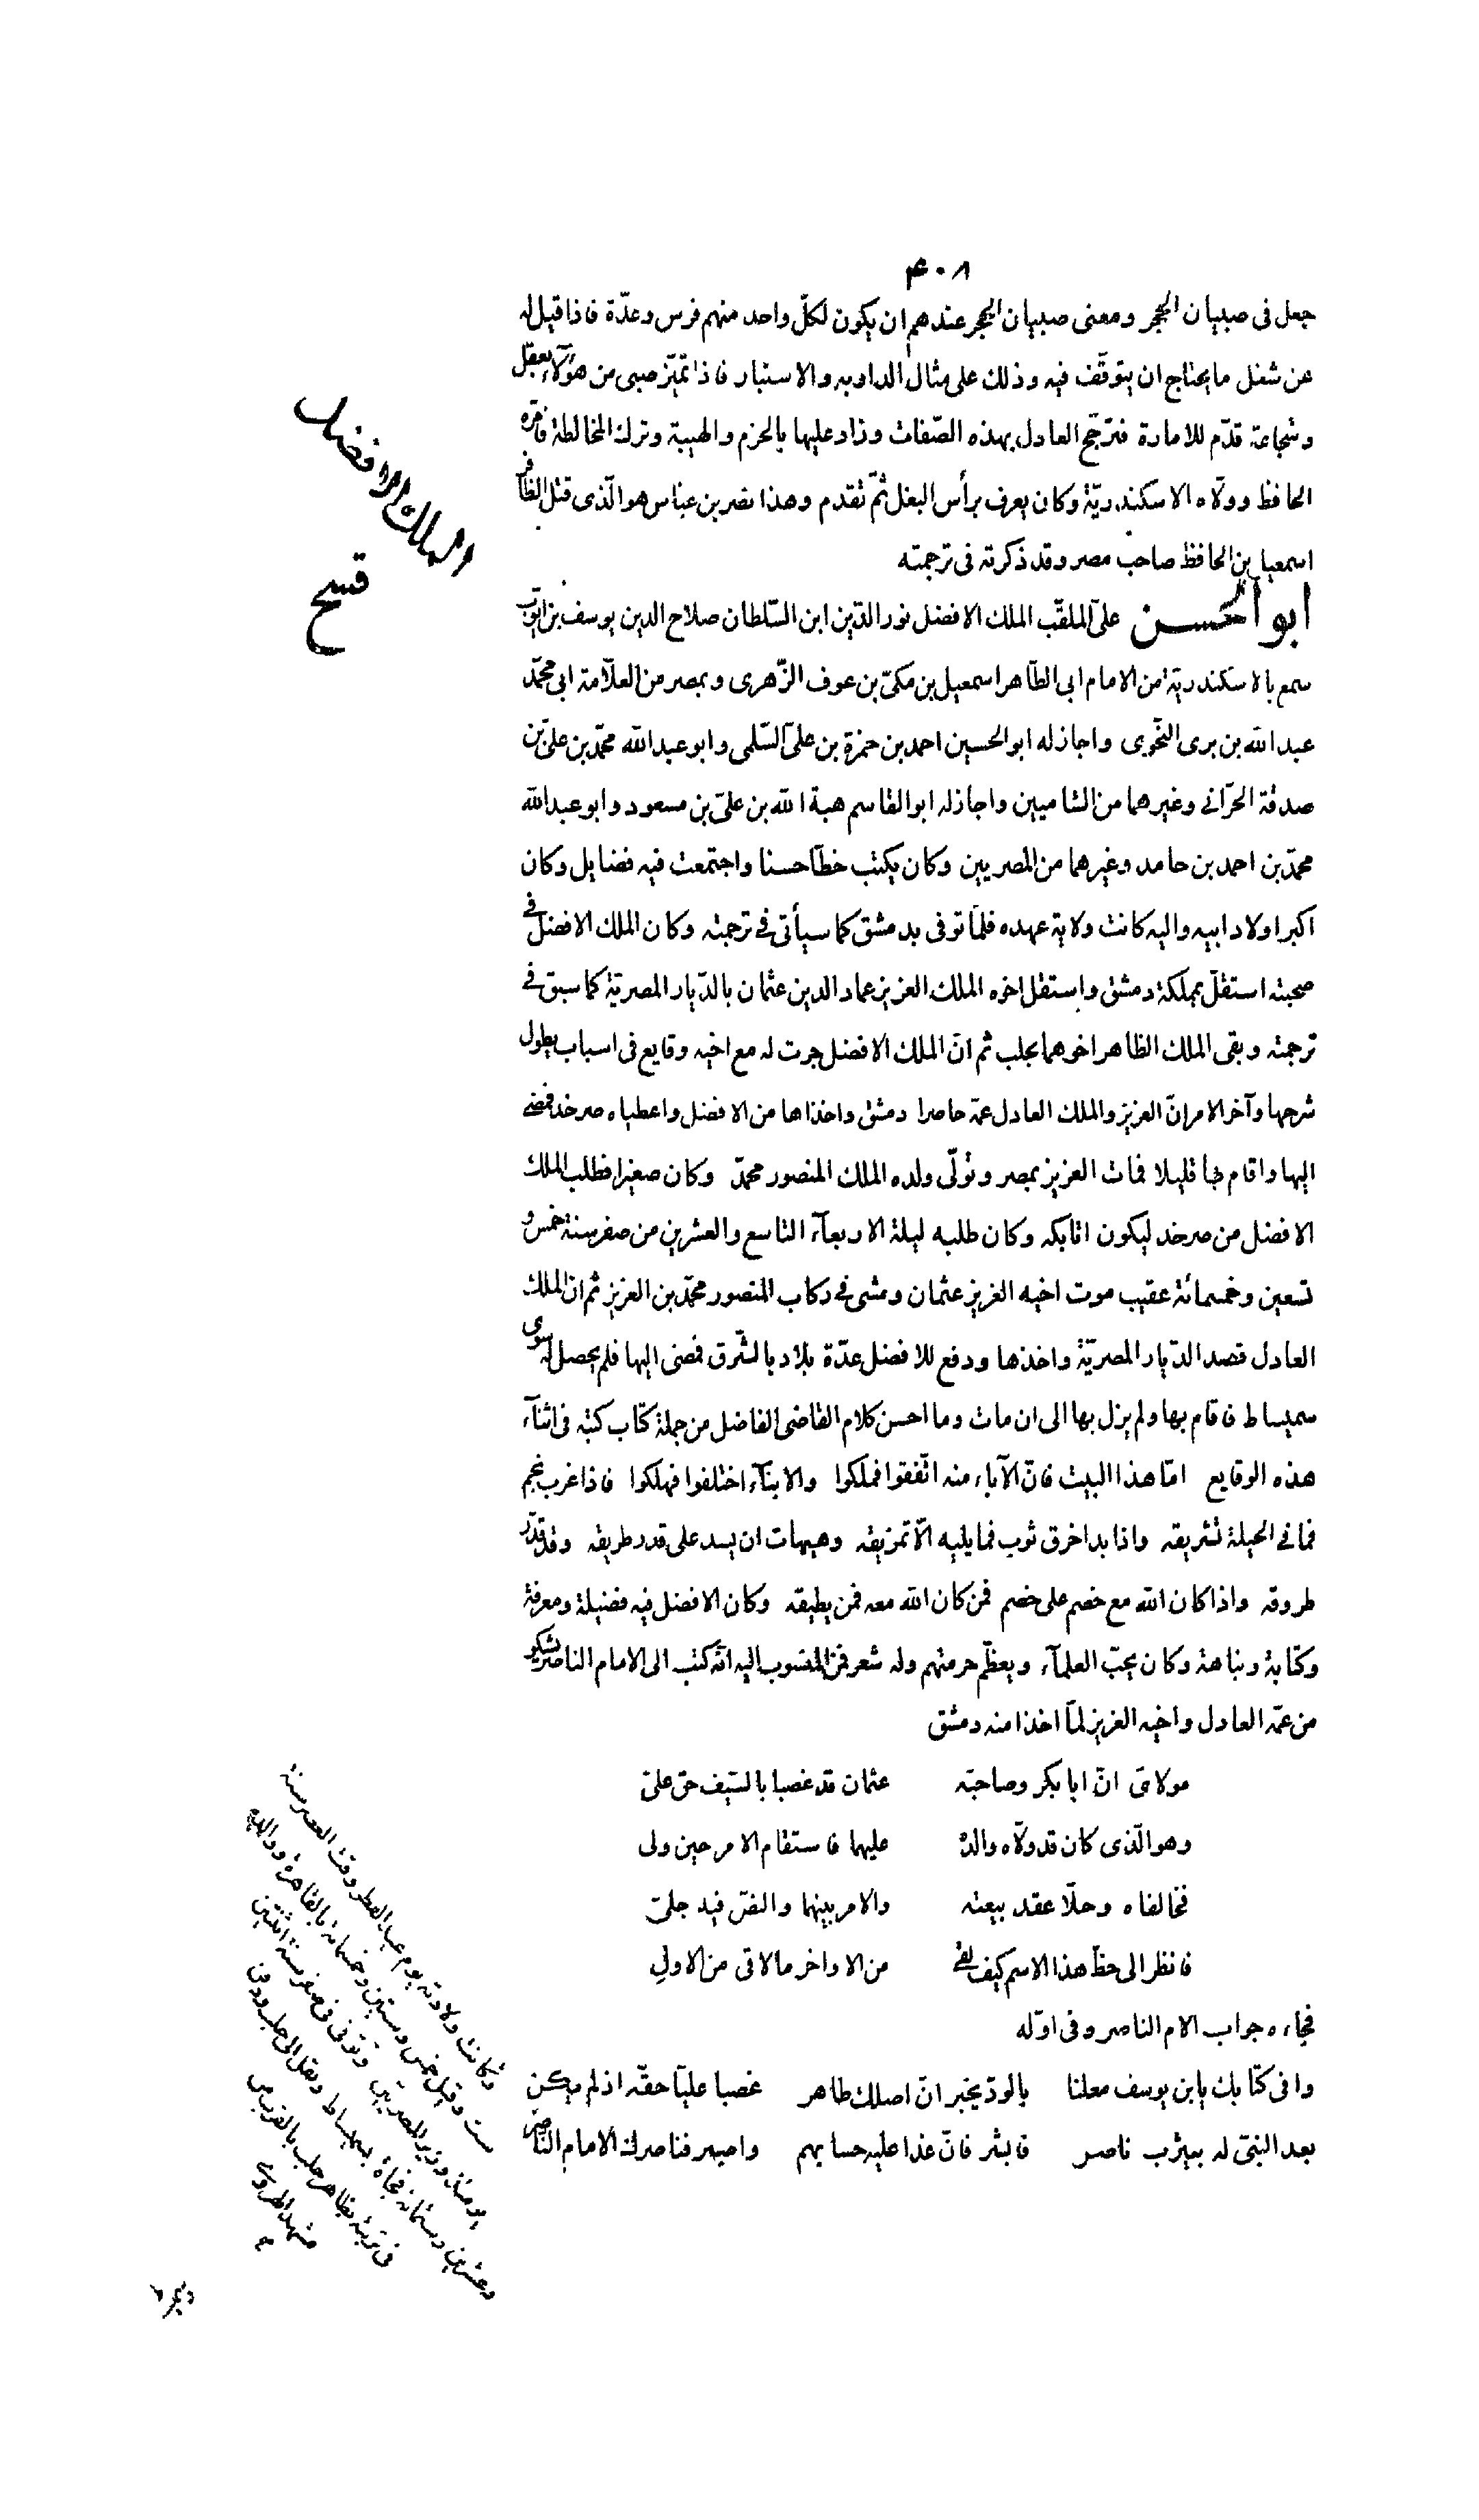 ۴۰۸
جعل فى صبيان الحجر ومعنى صبيان الحجر عندهم ان يكون لكلّ واحد منهم فرس وعدّة فاذا قيل له
عن شغل ما يحتاج ان يتوقّف فيه وذلك على مثال الداويه والاستبار فاذا تميّز صبى من هؤلآء بعقل
وشجاعة قدّم للامارة فترجّح العادل بهذه الصّفات وزاد عليها بالحزم والهيبة وترك المخالطة فامّره
الحافظ وولّاه الاسكندريّة وكان يعرف برأس البغل ثمّ تقدم وهذا نصر بن عباس هو الّذى قتل الظافر
اسمعيل بن الحافظ صاحب مصر وقد ذكرته فى ترجمته
ابو الحسن علىّ الملقّب الملك الافضل نور الدّين ابن السّلطان صلاح الدين يوسف بن ايّوب
سمع بالاسكندريّة من الامام ابى الطّاهر اسمعيل بن مكىّ بن عوف الزّهرى وبمصر من العلّامة ابى محمّد
عبد الله بن برى النحّوى واجاز له ابو الحسين احمد بن حمزة بن علىّ السّلمى وابو عبد الله محمّد بن علىّ بن
صدقة الحرّانى وغيرهما من الشاميين واجاز له ابو القاسم هبة الله بن علىّ بن مسعود وابو عبد الله
محمّد بن احمد بن حامد وغيرهما من المصريين وكان يكتب خطّا حسنا واجتمعت فيه فضايل وكان
اكبر اولاد ابيه واليه كانت ولاية عهده فلمّا توفى بدمشق كما سيأتى فى ترجمته وكان الملك الافضل فى
صحبته استقلّ بمملكة دمشق واستقل اخوه الملك العزيز عماد الدين عثمان بالدّيار المصريّة كما سبق فى
ترجمته وبقى الملك الظاهر اخوهما بحلب ثم انّ الملك الافضل جرت له مع اخيه وقايع فى اسباب يطول
شرحها وآخر الامر انّ العزيز والملك العادل عمّه حاصرا دمشق واخذاها من الافضل واعطياه صرخد فمضى
اليها واقام بها قليلا فمات العزيز بمصر وتولّى ولده الملك المنصور محمّد وكان صغيرا فطلب الملك
الافضل من صرخد ليكون اتابكه وكان طلبه ليلة الاربعآء التاسع والعشرين من صفر سنة خمس و
تسعين وخمسمائة عقيب موت اخيه العزيز عثمان ومشى فى ركاب المنصور محمّد بن العزيز ثم انّ الملك
العادل قصد الدّيار المصريّة واخذها ودفع للافضل عدّة بلاد بالشّرق فمضى اليها فلم يحصل له سوى
سميساط فاقام بها ولم يزل بها الى ان مات وما احسن كلام القاضى الفاضل من جملة كتاب كتبه فى اثنآء
هذه الوقايع امّا هذا البيت فانّ الآباء منه اتّفقوا فملكوا والابنآء اختلفوا فهلكوا فاذا غرب نجم
فما فى الحيلة تشريقه واذا بدا خرق ثوب فما يليه الّا تمزيقه وهيهات ان يسد على قدر طريقه وقد قدّر
طروقه واذا كان الله مع خصم على خصم فمن كان الله معه فمن يطيقه وكان الافضل فيه فضيلة ومعرفة
وكتابة ونباهة وكان يحبّ العلمآء ويعظّم حرمتهم وله شعر فمن المنسوب اليه انّه كتب الى الامام الناصر يشكو
من عمّه العادل واخيه العزيز لمّا اخذا منه دمشق
مولاىَ انّ ابا بكر وصاحبَه عثمان قد غصبا بالسّيف حق علىّ
وهو الّذى كان قد ولّاه والدهُ عليهما فاستقام الامر حين ولى
فخالفاه وحلّا عقد بيعته والامر بينهما والنصّ فيه جلىّ
فانظر الى حظّ هذا الاسم كيف لقى من الاواخر ما لاقى من الاولِ
فجاءه جواب الامام الناصر وفى اوّله
وافى كتابك يابن يوسف معلنا بالودّ يخبر انّ اصلك طاهر غصبا عليّا حقّه اذ لم يكن
بعد النبىّ له بيثرب ناصر فابشر فانّ غذا عليه حسابهم واصبر فناصرك الامام النّاصر
الملك الافضل
قسح
وكانت ولادته يوم عيد الفطر وقت العصر سنة
ست وقيل خمس وستين وخمسمائة بالقاهرة ووالده
يومئذ وزير للمصريّين وتوفى فى صفر سنة اثنتين
وعشرين وستمائة فجاة بسميساط ونقل الى حلب ودفن
فى تربته بظاهر حلب بالقرب من
مشهد الهروى